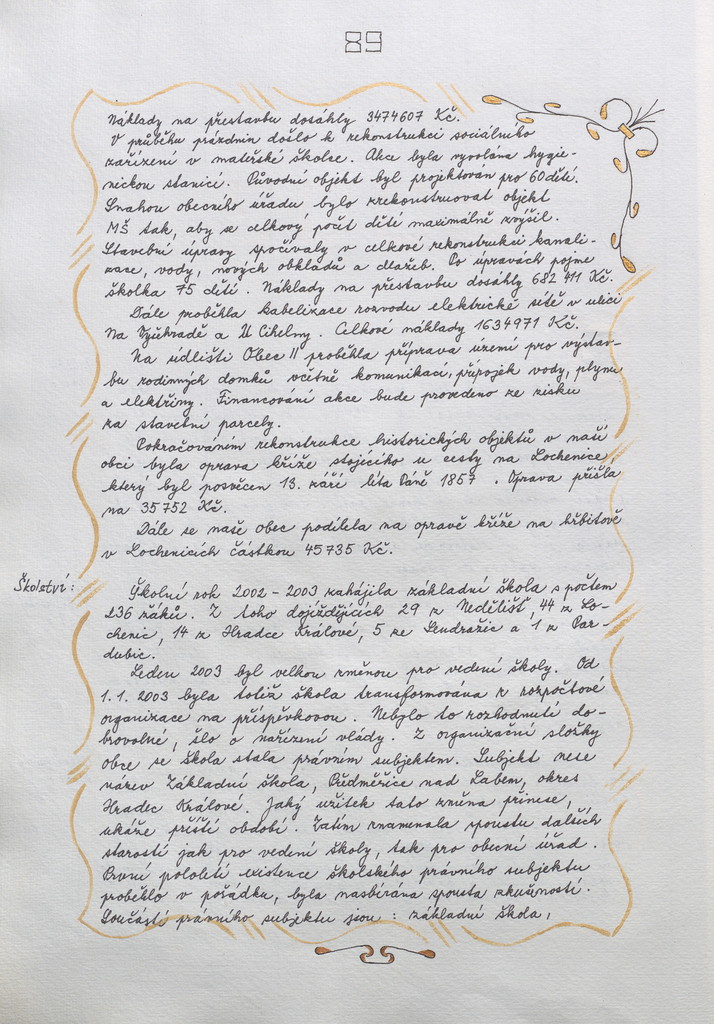 89
Náklady na přestavbu dosáhly 3474607 Kč.
V průběhu prázdnin došlo k rekonstrukci sociálního
zařízení v mateřské školce. Akce byla vyvolána hygie-
nickou stanicí. Původní objekt byl projektován pro 60 dětí.
Snahou obecního úřadu bylo zrekonstruovat objekt
MŠ tak, aby se celkový počet dětí maximálně zvýšil.
Stavební úpravy spočívaly v celkové rekonstrukci kanali-
zace, vody, nových obkladů a dlažeb. Po úpravách pojme
školka 75 dětí. Náklady na přestavbu dosáhly 682 411 Kč.
Dále proběhla kabelizace rozvodu elektrické sítě v ulici
Na Vyšehradě a U Cihelny. Celkové náklady 1634971 Kč.
Na sídlišti Obec II proběhla příprava území pro výstav-
bu rodinných domků včetně komunikací, přípojek vody, plynu
a elektřiny. Financování akce bude provedeno ze zisku
za stavební parcely.
Pokračováním rekonstrukce historických objektů v naší
obci byla oprava kříže stojícího u cesty na Lochenice,
který byl posvěcen 13. září léta Páně 1857. Oprava přišla
na 35752 Kč.
Dále se naše obec podílela na opravě kříže na hřbitově
v Lochenicích částkou 45735 Kč.
Školství:
Školní rok 2002 - 2003 zahájila základní škola s počtem
236 žáků. Z toho dojíždějících 29 z Nedělišť, 44 z Lo-
chenic, 14 z Hradce Králové, 5 ze Sendražic a 1 z Par-
dubic.
Leden 2003 byl velkou změnou pro vedení školy. Od
1.1. 2003 byla totiž škola transformována z rozpočtové
organizace na příspěvkovou. Nebylo to rozhodnutí do-
brovolné, šlo o nařízení vlády. Z organizační složky
obce se škola stala právním subjektem. Subjekt nese
název Základní škola, Předměřice nad Labem, okres
Hradec Králové. Jaký užitek tato změna přinese,
ukáže příští období. Zatím znamenala spoustu dalších
starostí jak pro vedení školy, tak pro obecní úřad.
První pololetí existence školského právního subjektu
proběhlo v pořádku, byla nasbírána spousta zkušeností.
Součástí právního subjektu jsou : základní škola,